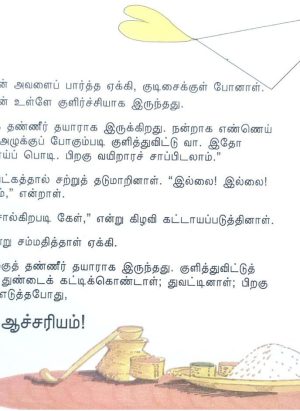 ன் அவளைப் பார்த்த ஏக்கி, குடிசைக்குள் போனாள்.
ன் உள்ளே குளிர்ச்சியாக இருந்தது.
தண்ணீர் தயாராக இருக்கிறது. நன்றாக எண்ணெய்
அழுக்குப் போகும்படி குளித்துவிட்டு வா. இதோ
ாய்ப் பொடி. பிறகு வயிறாரச் சாப்பிடலாம்.”
ட்கத்தால் சற்றுத் தடுமாறினாள். “இல்லை! இல்லை!
ம்,” என்றாள்.
சால்கிறபடி கேள்,” என்று கிழவி கட்டாயப்படுத்தினாள்.
று சம்மதித்தாள் ஏக்கி.
குத் தண்ணீர் தயாராக இருந்தது. குளித்துவிட்டுத்
துண்டைக் கட்டிக்கொண்டாள்; துவட்டினாள்; பிறகு
எடுத்தபோது,
ஆச்சரியம்!